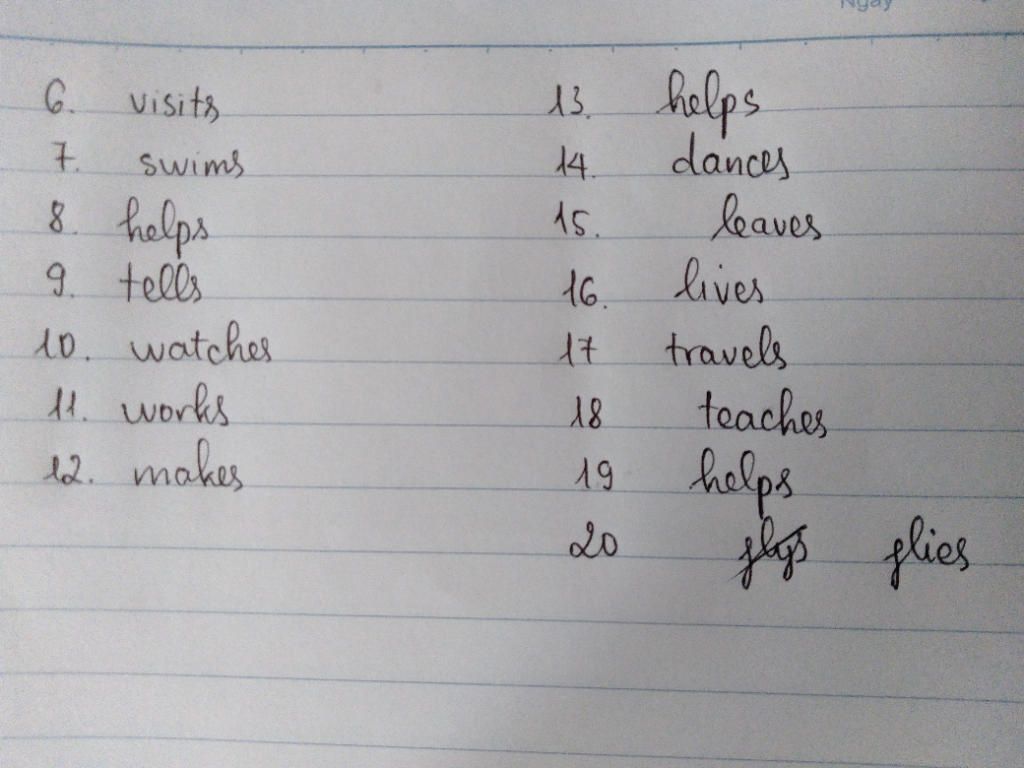 Ngày
6. visits
7. swims
8. helps
9. tells
10. watches
11. works
12. makes
13. helps
14. dances
15. leaves
16. lives
17 travels
18 teaches
19 helps
20 flys flies